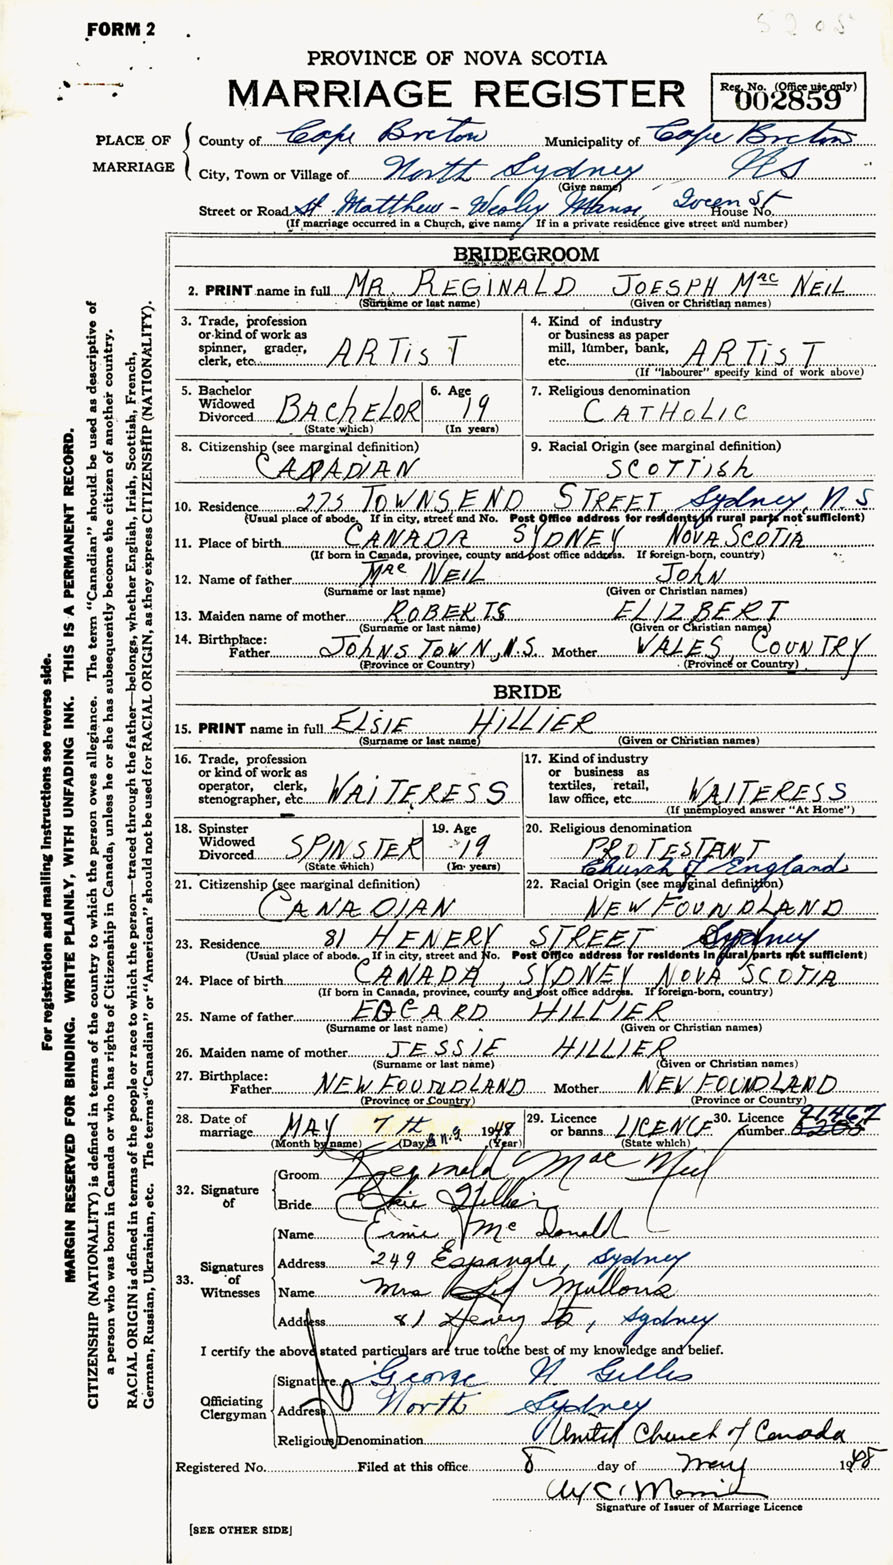 FORM 2
5205
PROVINCE OF NOVA SCOTIA
MARRIAGE REGISTER
Reg. No. (Office use only)
002859
PLACE OF MARRIAGE
County of Cape Breton Municipality of Cape Breton
City, Town or Village of North Sydney NS
(Give name)
Street or Road St. Matthew - Wesley Manse, Queen St House No.
(If marriage occurred in a Church, give name If in a private residence give street and number)
BRIDEGROOM
2. PRINT name in full MR. REGINALD JOESPH MacNEIL
(Surname or last name) (Given or Christian names)
3. Trade, profession or kind of work as spinner, grader, clerk, etc. ARTIST
4. Kind of industry or business as paper mill, lumber, bank, etc. ARTIST
(If "labourer" specify kind of work above)
5. Bachelor Widowed Divorced BACHELOR
(State which)
6. Age 19
(In years)
7. Religious denomination
CATHOLIC
8. Citizenship (see marginal definition)
CANADIAN
9. Racial Origin (see marginal definition)
SCOTTISH
10. Residence 275 TOWNSEND STREET Sydney, N.S
(Usual place of abode. If in city, street and No. Post Office address for residents in rural parts not sufficient)
11. Place of birth CANADA SYDNEY NOVA SCOTIA
(If born in Canada, province, county and post office address. If foreign-born, country)
12. Name of father MacNEIL JOHN
(Surname or last name) (Given or Christian names)
13. Maiden name of mother ROBERTS ELIZBERT
(Surname or last name) (Given or Christian names)
14. Birthplace:
Father JOHNSTOWN, N.S. Mother WALES, COUNTRY
(Province or Country) (Province or Country)
BRIDE
15. PRINT name in full ELSIE HILLIER
(Surname or last name) (Given or Christian names)
16. Trade, profession or kind of work as operator, clerk, stenographer, etc. WAITERESS
17. Kind of industry or business as textiles, retail, law office, etc. WAITERESS
(If unemployed answer "At Home")
18. Spinster Widowed Divorced SPINSTER
(State which)
19. Age 19
(In years)
20. Religious denomination
PROTESTANT
Church of England
21. Citizenship (see marginal definition)
CANADIAN
22. Racial Origin (see marginal definition)
NEWFOUNDLAND
23. Residence 81 HENERY STREET Sydney
(Usual place of abode. If in city, street and No. Post Office address for residents in rural parts not sufficient)
24. Place of birth CANADA, SYDNEY NOVA SCOTIA
(If born in Canada, province, county and post office address. If foreign-born, country)
25. Name of father EDGARD HILLIER
(Surname or last name) (Given or Christian names)
26. Maiden name of mother JESSIE HILLIER
(Surname or last name) (Given or Christian names)
27. Birthplace:
Father NEWFOUNDLAND Mother NEWFOUNDLAND
(Province or Country) (Province or Country)
28. Date of marriage MAY 7th 1948
(Month by name) (Day) (Year)
29. Licence or banns LICENCE
(State which)
30. Licence number 91467
5205
32. Signature of
Groom Reginald MacNeil
Bride Elsie Hillier
33. Signatures of Witnesses
Name Ernie McDonald
Address 249 Espangle, Sydney
Name Mrs Mullons
Address 81 Henry St, Sydney
I certify the above stated particulars are true to the best of my knowledge and belief.
Officiating Clergyman
Signature George N Gillis
Address North Sydney
Religious Denomination United Church of Canada
Registered No. Filed at this office 8 day of May 1948
Signature of Issuer of Marriage Licence
[SEE OTHER SIDE]
For registration and mailing instructions see reverse side.
MARGIN RESERVED FOR BINDING. WRITE PLAINLY, WITH UNFADING INK. THIS IS A PERMANENT RECORD.
CITIZENSHIP (NATIONALITY) is defined in terms of the country to which the person owes allegiance. The term "Canadian" should be used as descriptive of
a person who was born in Canada or who has rights of Citizenship in Canada, unless he or she has subsequently become the citizen of another country.
RACIAL ORIGIN is defined in terms of the people or race to which the person—traced through the father—belongs, whether English, Irish, Scottish, French,
German, Russian, Ukrainian, etc. The terms "Canadian" or "American" should not be used for RACIAL ORIGIN, as they express CITIZENSHIP (NATIONALITY).